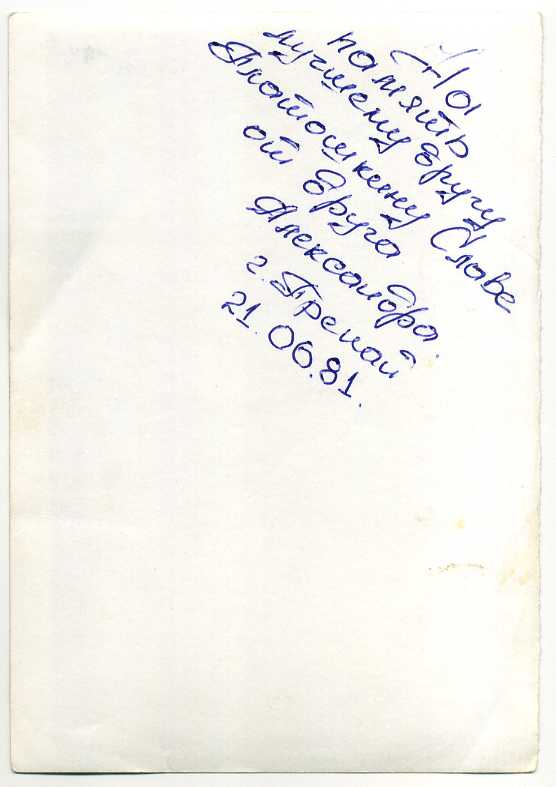 На
память
лучшему другу
Платошкину Славе
от друга
Александра.
г. Тремай
21.06.81.